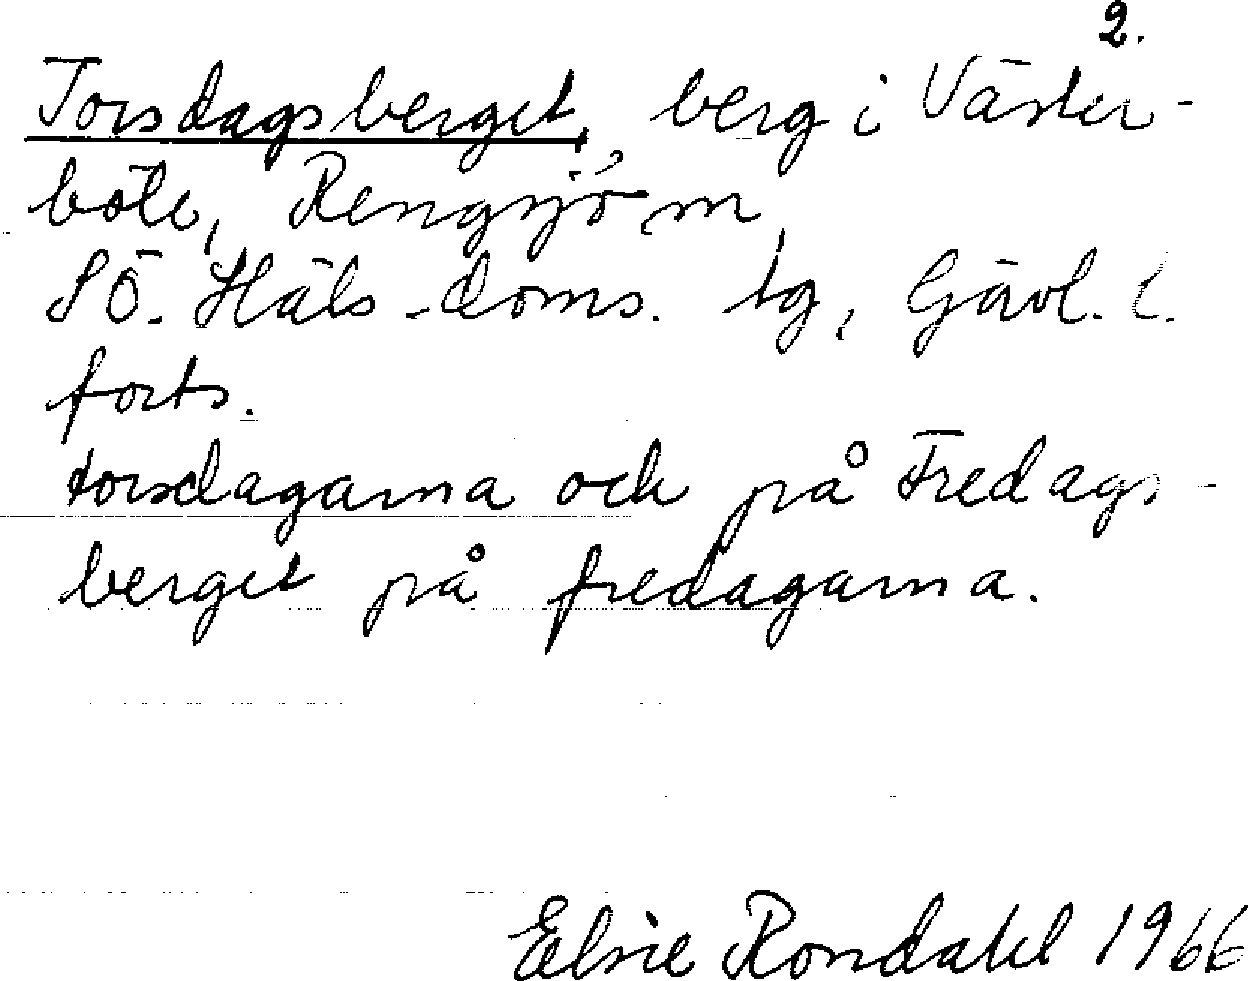 2.
Torsdagsberget, berg i Väster-
böle, Rengsjö sn,
SÖ. Häls. doms. tg, Gävl. l.
forts.
torsdagarna och på Fredags-
berget på fredagarna.
Elsie Rondahl 1966